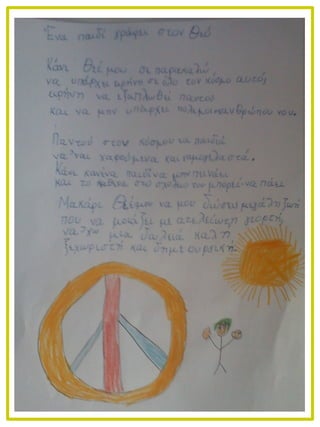 Ένα παιδί γράφει στον Θεό
Κάνε Θεέ μου σε παρακαλώ
να υπάρχει ειρήνη σε όλο τον κόσμο αυτός
ειρήνη να εξαπλωθεί παντού
και να μην υπάρχει πόλεμος
Παντού στον κόσμο τα παιδιά
να 'ναι χαρούμενα και
Κάνε κανένα παιδί να μην πεινάει
και το καθένα στο σχολείο του μπορεί να πάει
Μακάρι Θεέ μου να μου δώσεις μεγάλη ζωή
που να μοιάζει με ατελείωτη γιορτή
να 'χω μια δουλειά καλή
ξεχωριστή και δημιουργική.